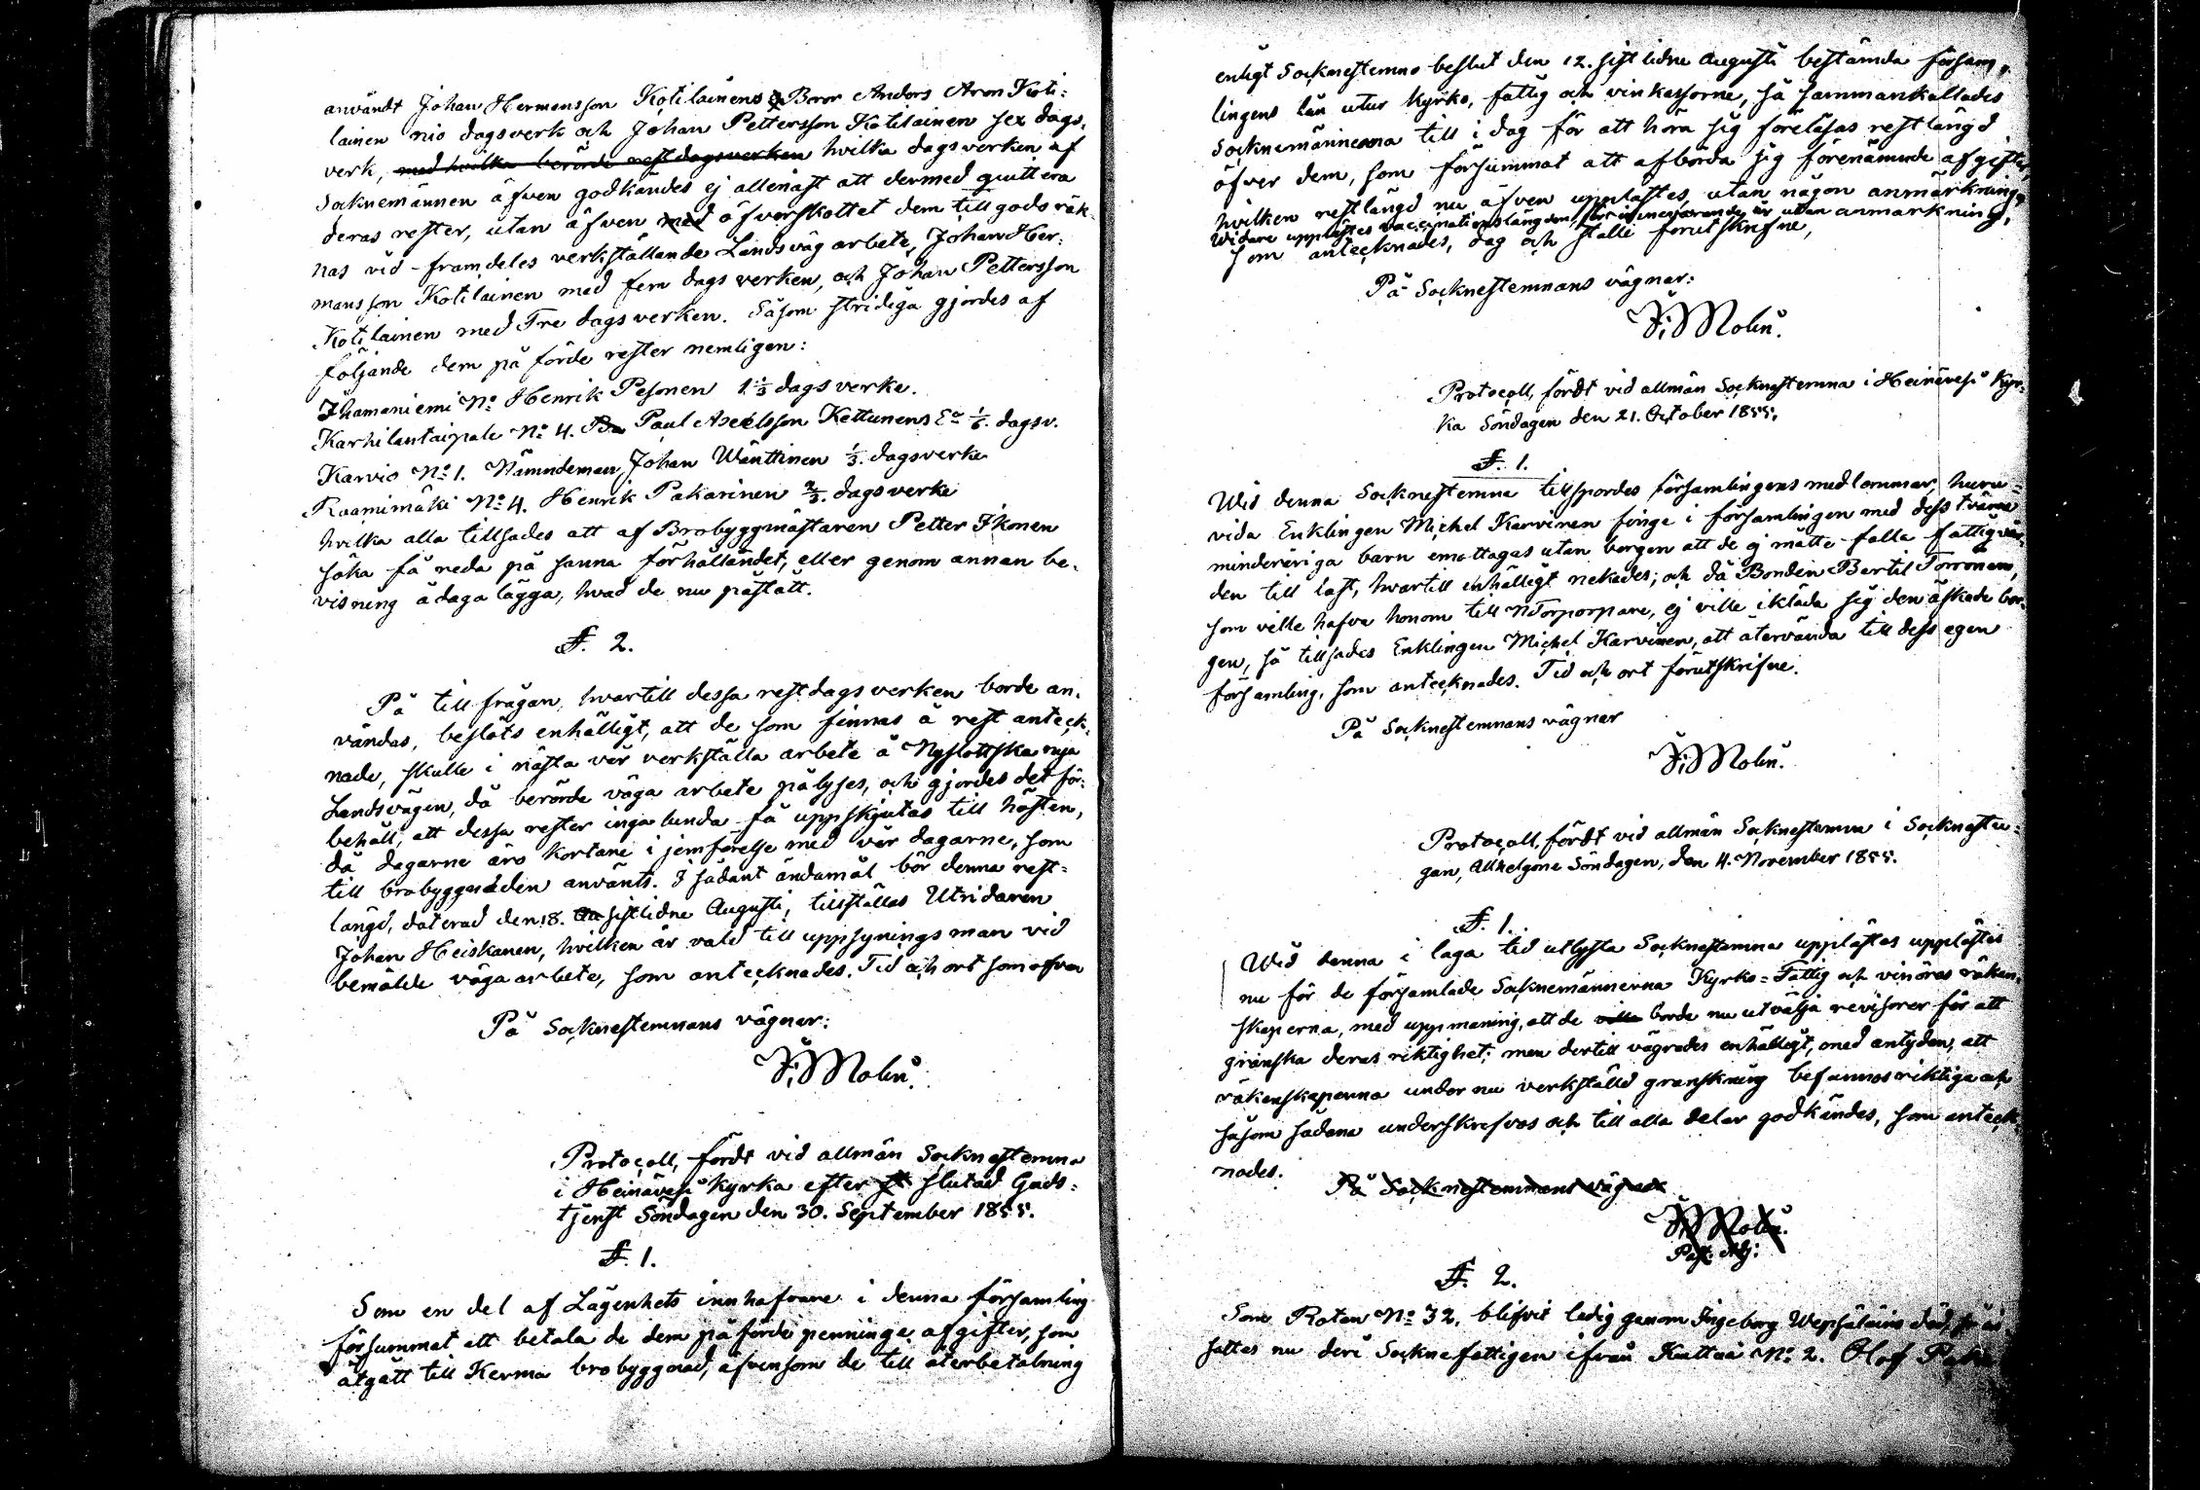 användt Johan Hermansson Kotilainens Broer Anders Aron Koti=
lainen nio dagsverk och Johan Pettersson Kotilainen sex dags,
verk, med hvilka berörde restdagsverken hvilka dagsverken af
Socknemännen äfven godkändes ej allenast att dermed quittera
deras rester, utan äfven med öfverskottet dem till godo räk-
nas vid framdeles verkställande Landsväg arbete, Johan Her=
mansson Kotilainen med fem dagsverken, och Johan Pettersson
Kotilainen med Tre dagsverken. Såsom stridiga gjordes af
följande dem på förde rester nemligen:
Ihamaniemi No Henrik Pesonen 1 1/3 dagsverke.
Karhilantaipale No 4. Paul Axelsson Kettunens Eo 1/6. dagsv.
Karvio No 1. Nämndeman Johan Wänttinen 1/3. dagsverke
Raamimäki No 4. Henrik Pakarinen 2/3. dagsverke
hvilka alla tillsades att af Brobyggmästaren Petter Ikonen
söka få reda på sanna förhållandet, eller genom annan be-
visning ådaga lägga, hvad de nu påstått.
§. 2.
På till frågan, hvartill dessa restdagsverken borde an-
vändas, beslöts enhälligt, att de som finnas å rest anteck-
nade, skulle i nästa vår verkställa arbete å Nyslottska nya
Landsvägen, då berörde väga arbete pålyses, och gjordes det för-
behåll, att dessa rester ingalunda få uppskjutas till hösten,
då dagarne äro kortare i jemförelse med vår dagarne, som
till brobyggnaden använts. I sådant ändamål bör denna rest=
längd, daterad den 18. sistlidne Augusti, tillställas Utridaren
Johan Heiskanen, hvilken är vald till uppsynings man vid
bemälde väga arbete, som antecknades. Tid och ort som ofvan
På Sockenstemmans vägnar:
J. Molin.
Protocoll, fördt vid allmän Sockenstemma
i Heinävesi Kyrka efter slutad Guds=
tjenst Söndagen den 30. September 1855.
§. 1.
Som en del af Lägenhets innhafvare i denna församling
försummat att betala de dem påförde penninge afgifter, som
åtgått till Kerma brobyggnad, äfvensom de till återbetalning
enligt Sockenstemmo beslut den 12. sist lidne Augusti bestämda försam,
lingens lån utur Kyrko, fattig och vinkassorne, så sammankallades
Socknemännerna till i dag för att höra sig föreläsas restlängd
öfver dem, som försummat att afbörda sig förenämnde afgifter,
hvilken restlängd nu äfven upplästes, utan någon anmärkning,
Widare upplästes vaccinationslängden för innevarande år utan anmärkning,
som antecknades, dag och ställe förutskrifne,
På Sockenstemmans vägnar:
J. Molin.
Protocoll, fördt vid allmän Sockenstemma i Heinävesi Kyr-
ka Söndagen den 21. October 1855.
§. 1.
Wid denna Sockenstemma tillspordes församlingens medlemmar, huru=
vida Enklingen Michel Karvinen finge i församlingen med dess tvänne
minderåriga barn emottagas utan borgen att de ej måtte falla fattigvår,
den till last, hvartill enhälligt nekades; och då Bonden Bertil Torronen,
som ville hafva honom till Torpare, ej ville ikläda sig den äskade bor,
gen, så tillsades Enklingen Michel Karvinen, att återvända till dess egen
församling, som antecknades. Tid och ort förutskrifne.
På Sockenstemmans vägnar
J. Molin.
Protocoll, fördt vid allmän Sockenstemma i Sockenstu=
gan, Allhelgone Söndagen, den 4. November 1855.
§. 1.
Wid denna i laga tid utlysta Sockenstemma upplästes upplästes
nu för de församlade Socknemännerna Kyrko= Fattig och vinöres räken,
skaperna, med uppmaning, att de ville borde nu utvälja revisorer för att
granska deras riktighet; men dertill vägrades enhälligt, med antyden, att
räkenskaperna under nu verkställd granskning befunnos riktiga och
såsom sådana underskrefvos och till alla delar godkändes, som anteck-
nades.
På Sockenstemmans vägnar
J. Molin.
Past. Adj:
§. 2.
Som Roten No 32, blifvit ledig genom Ingeborg Wepsäläins död,
sattes nu deri Socknefattigen ifrån No 2. Olof